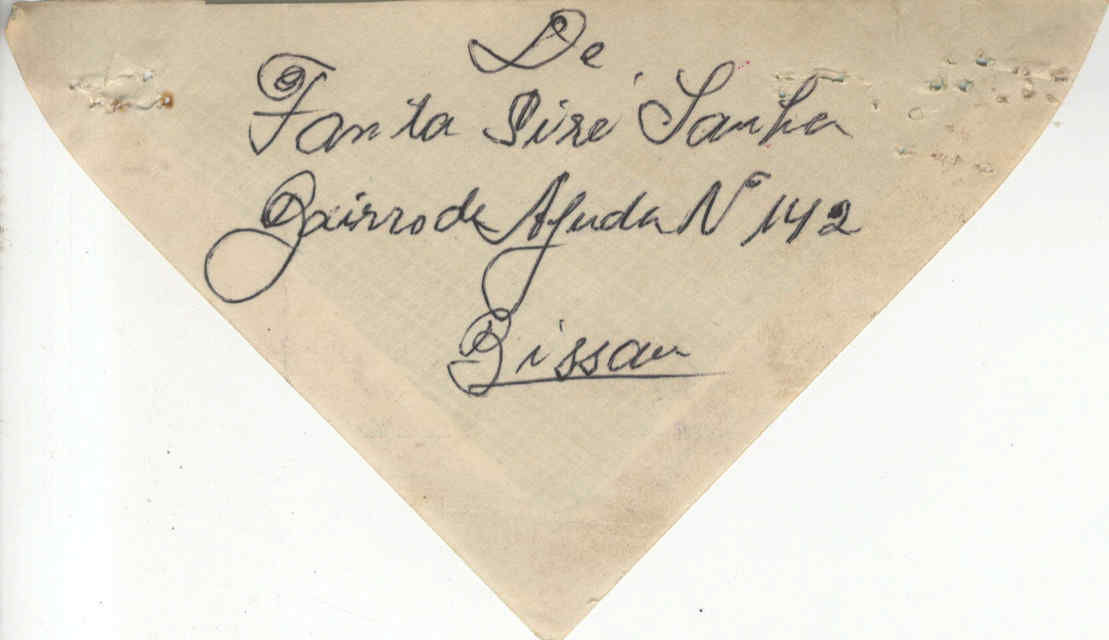 De
Fanta Siré Sanha
Bairro de Ajuda Nº 142
Bissau